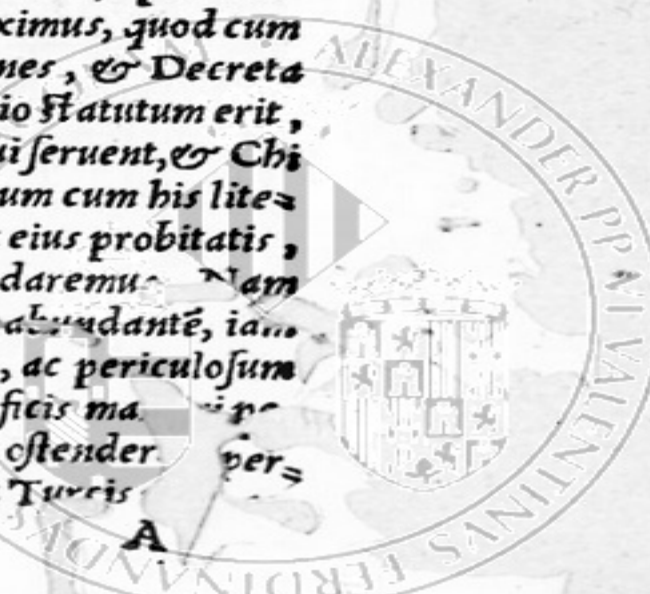 ximus, quod cum
nes, & Decreta
io statutum erit,
ui seruent, & Chi
um cum his lite=
eius probitatis,
daremus Nam
abundantē,
, ac periculosum
ficis
ostender per=
Turcis
A
ALEXANDER PP VI VALENTINVS FERDINANDVS